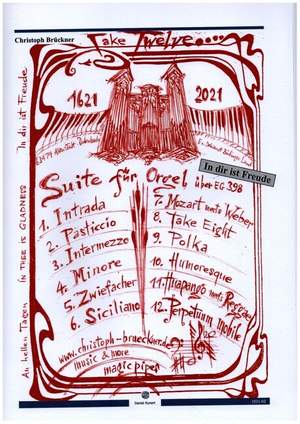 Christoph Brückner
Take Twelve.....
1621
2021
In dir ist Freude
Suite für Orgel über EG 398
1. Intrada
2. Pasticcio
3. Intermezzo
4. Minore
5. Zwiefacher
6. Siciliano
7. Mozart meets Weber
8. Take Eight
9. Polka
10. Humoresque
11. Huapango meets
12. Perpetuum mobile
www.christoph-brueckner.de
music & more
magic pipes
An hellen Tagen
IN THEE IS GLADNESS
In dir ist Freude